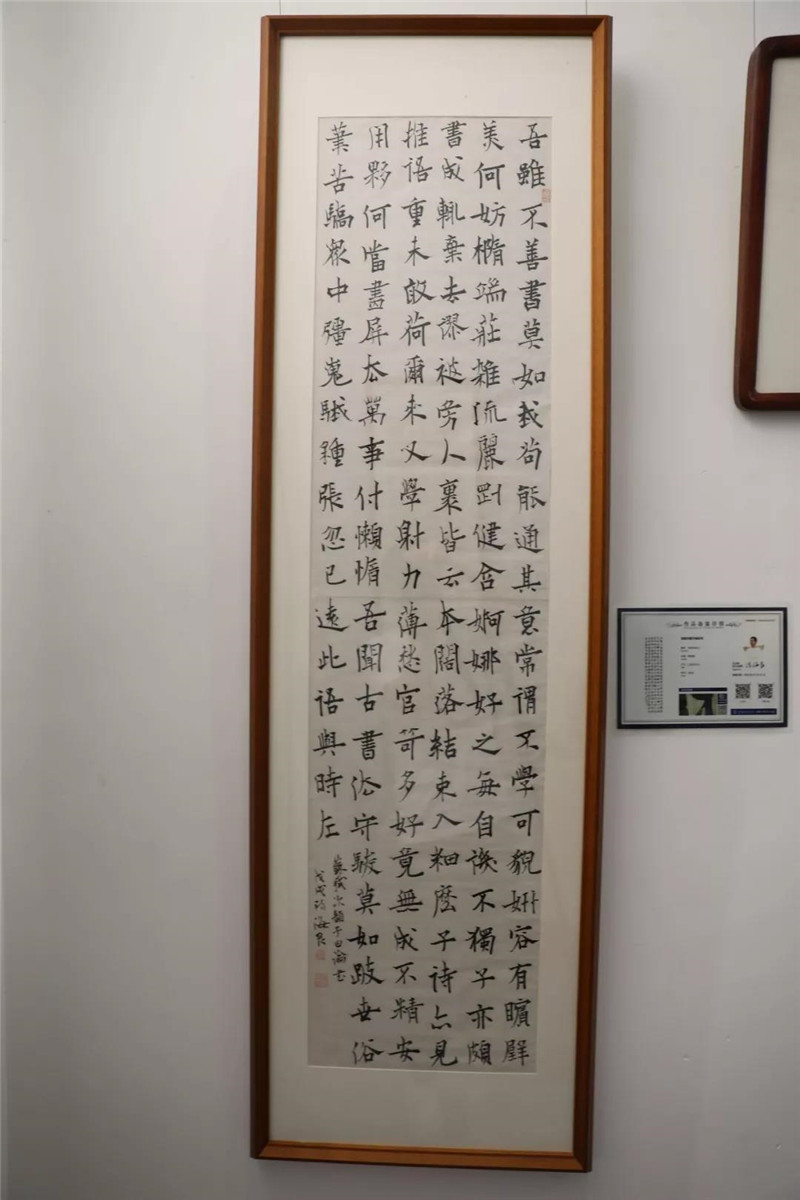 吾雖不善書莫如我苟能通其意常謂不學可貌妍容有矉璧
美何妨橢端莊雜流麗剛健含婀娜好之每自譏不獨子亦頗
書成輒棄去謬被旁人裹皆云本闊落結束入細麼子詩亦見
推語重未敢荷爾来又學射力薄愁官笴多好竟無成不精安
用夥何當盡屏去萬事付懶惰吾聞古書法守駿莫如跛世俗
筆苦驕衆中彊嵬騀鍾張忽已遠此語與時左
蘇軾次韻子由論書
戊戌海良